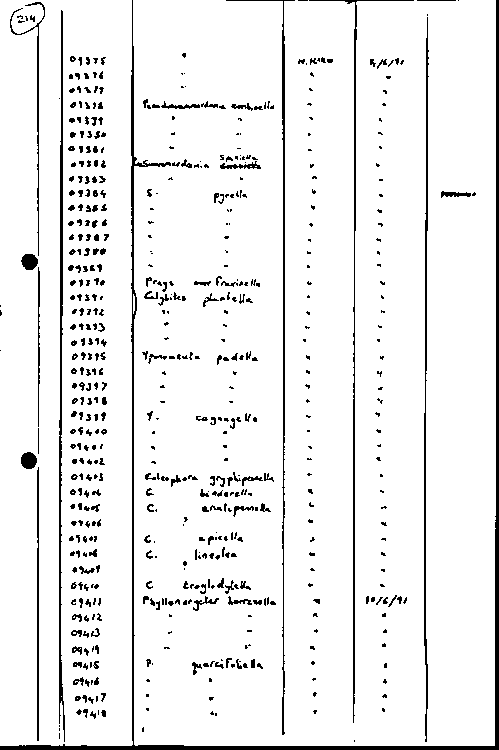 234
09375 " 8/6/91
09376 " " "
09377 " " "
09378 Pseudoswammerdamia combinella " "
09379 " " " "
09380 " " " "
09381 " " " "
09382 Swammerdamia spiniella " "
09383 " " " "
09384 S. pyrella " "
09385 " " " "
09386 " " " "
09387 " " " "
09388 " " " "
09389 " " " "
09390 Prays fraxinella " "
09391 plantella " "
09392 " " " "
09393 " " " "
09394 " " " "
09395 Yponomeuta padella " "
09396 " " " "
09397 " " " "
09398 " " " "
09399 Y. cagnagella " "
09400 " " " "
09401 " " " "
09402 " " " "
09403 Coleophora gryphipennella " "
09404 C. binderella " "
09405 C. " "
09406 ? " "
09407 C. " "
09408 C. lineolea " "
09409 " " "
09410 C. troglodytella " "
09411 Phyllonorycter harrisella " 10/6/91
09412 " " " "
09413 " " " "
09414 " " " "
09415 P. quercifoliella " "
09416 " " " "
09417 " " " "
09418 " " " "